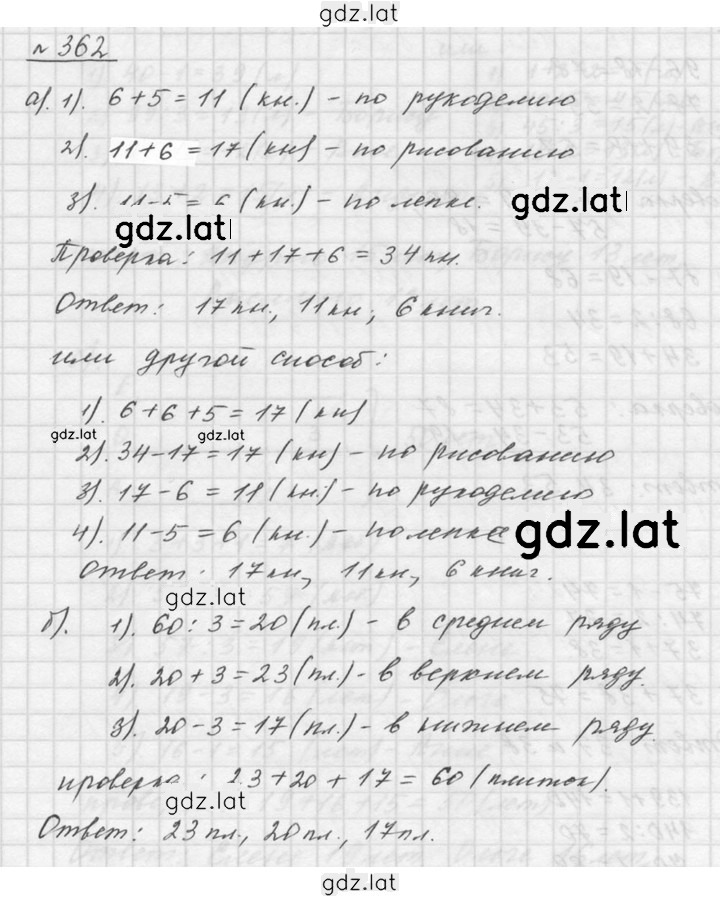 gdz.lat
№ 362
а). 1). 6+5=11 (кн.) - по рукоделию
2). 11+6=17 (кн) - по рисованию
3). 11-5=6 (кн.) - по лепке.
gdz.lat
gdz.lat
Проверка: 11+17+6=34 кн.
Ответ: 17 кн., 11 кн., 6 книг.
или другой способ:
1). 6+6+5=17 (кн)
gdz.lat gdz.lat
2). 34-17=17 (кн) - по рисованию
3). 17-6=11 (кн.) - по рукоделию
4). 11-5=6 (кн.) - по лепке
gdz.lat
Ответ: 17 кн, 11 кн, 6 книг.
gdz.lat
б). 1). 60:3=20 (пл.) - в среднем ряду
2). 20+3=23 (пл.) - в верхнем ряду.
3). 20-3=17 (пл.) - в нижнем ряду.
проверка: 23+20+17=60 (плиток).
gdz.lat
Ответ: 23 пл., 20 пл., 17 пл.
gdz.lat